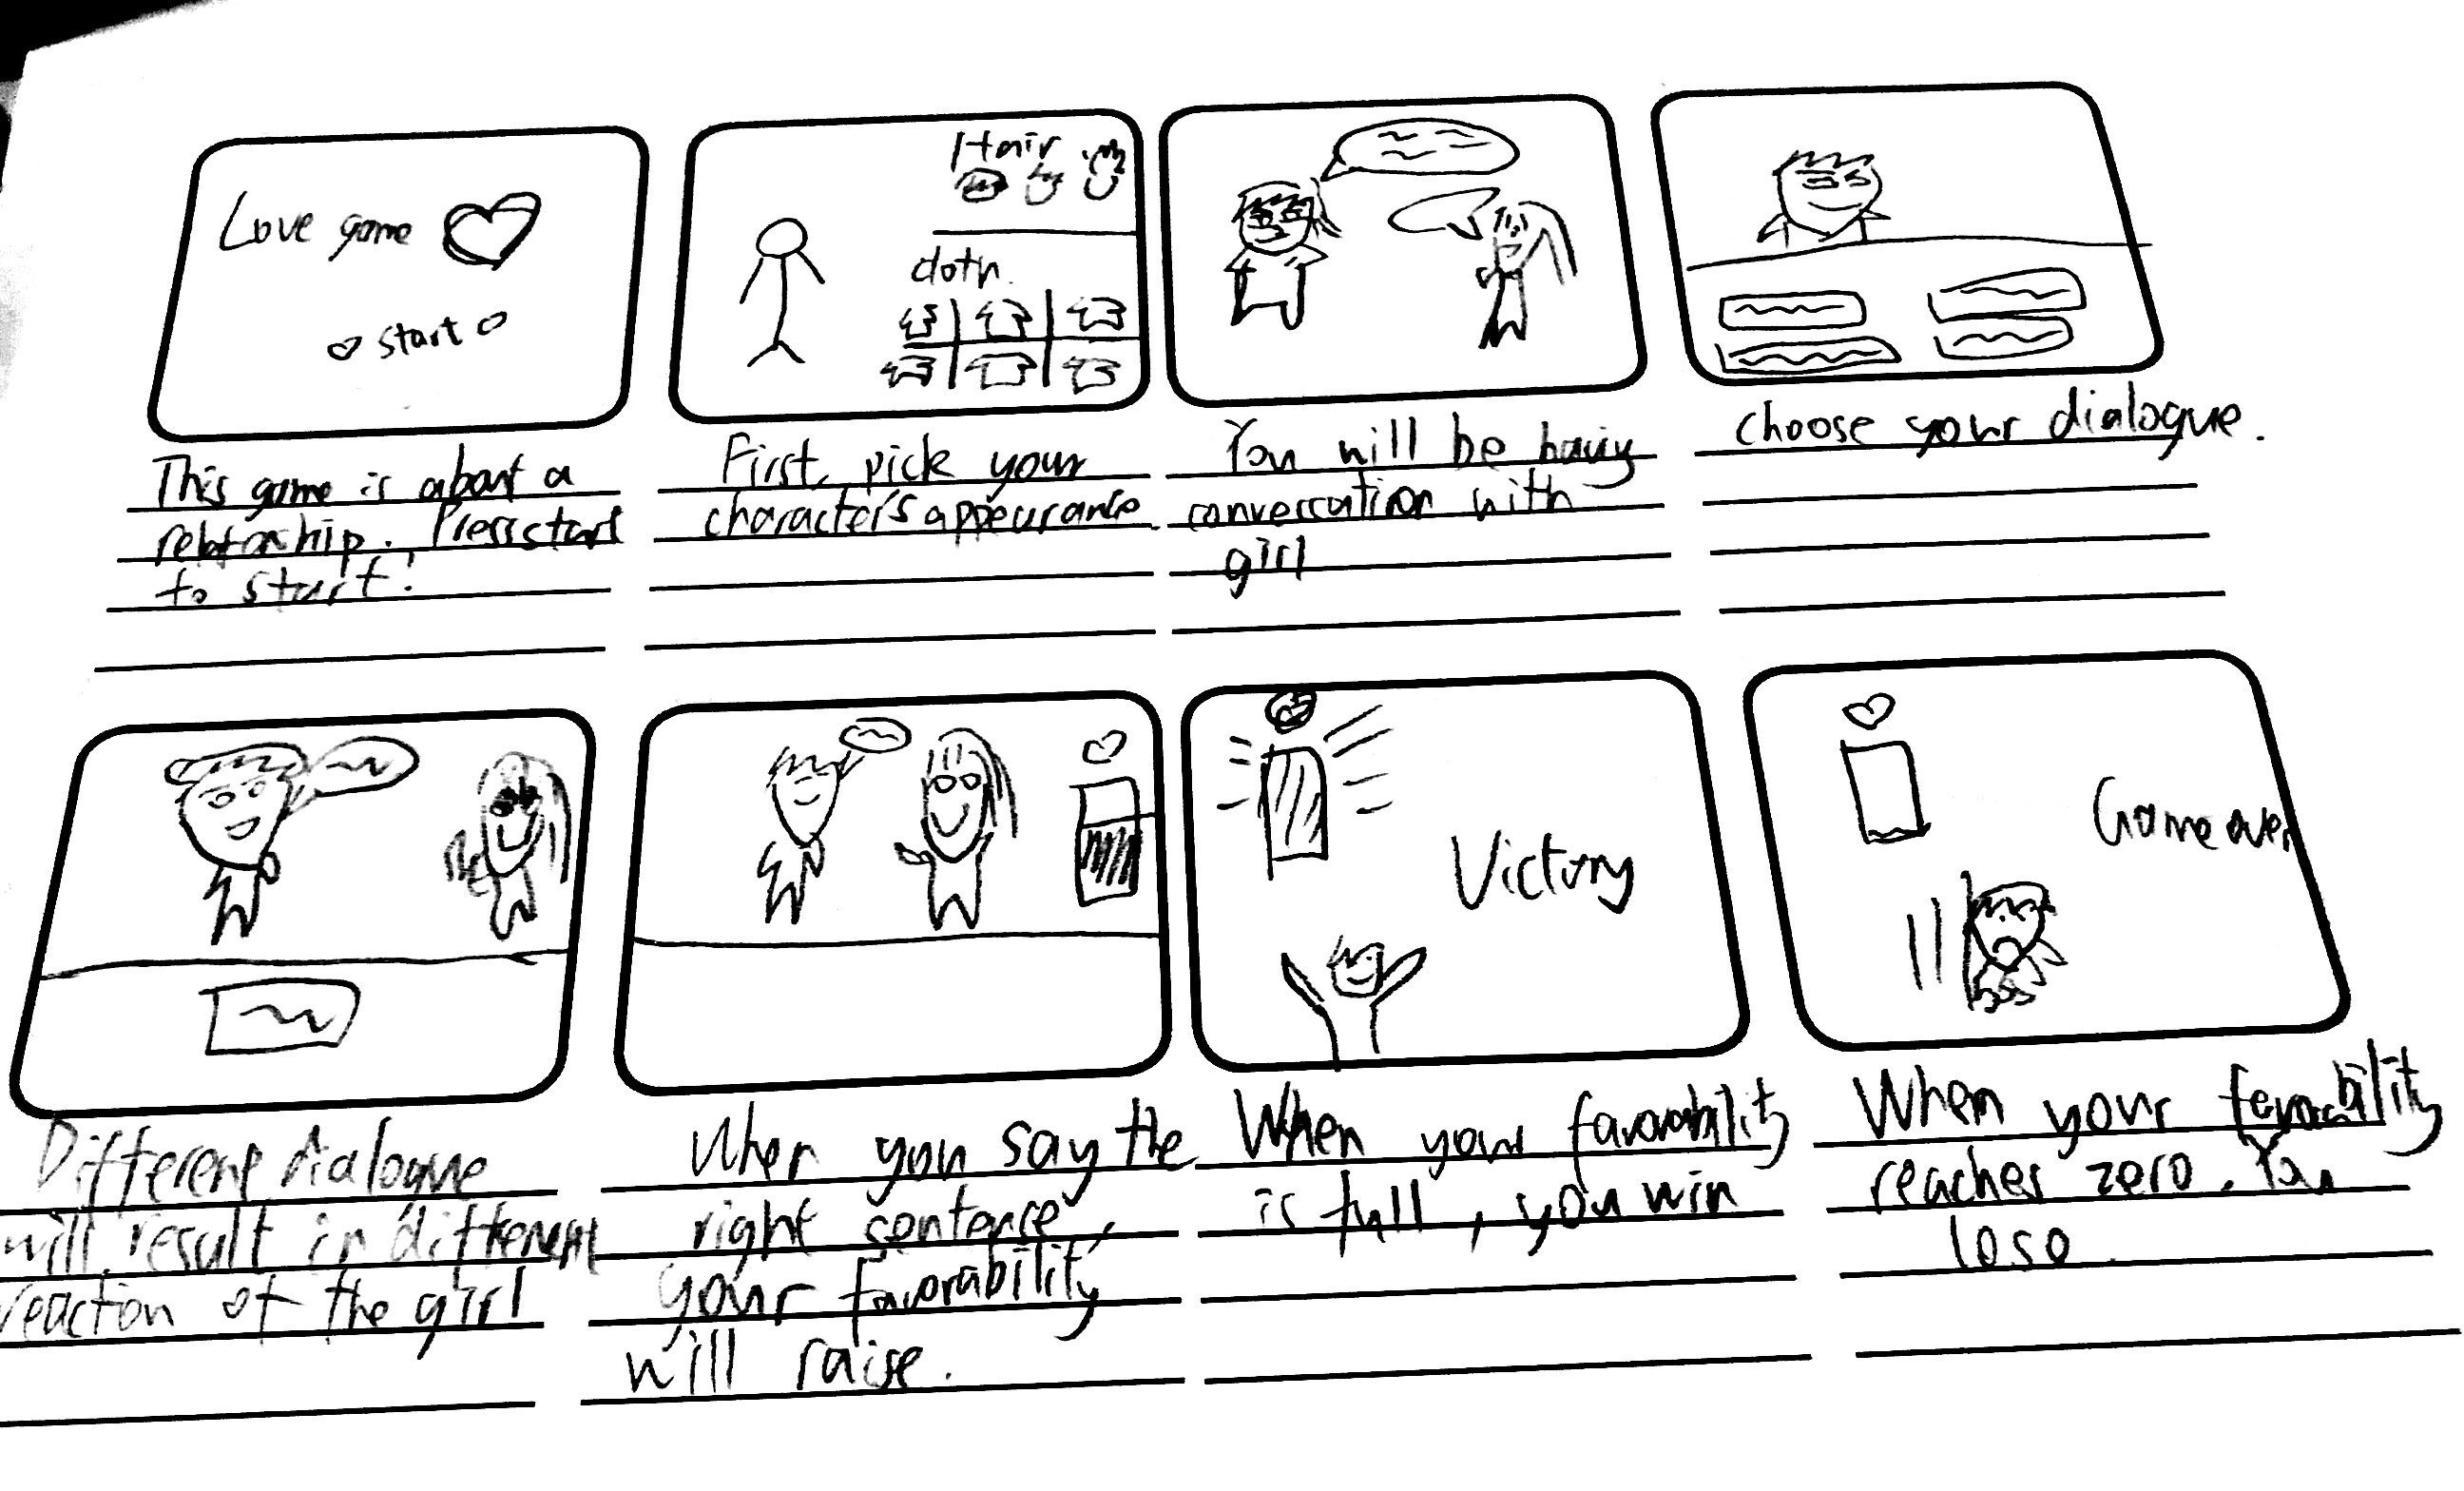 Love game
start
Hair
cloth.
This game is about a
relationship. Press start
to start!
First, pick your
character's appearance.
You will be having
conversation with
girl
choose your dialogue.
Victory
Game over
Different dialogue
will result in different
reaction of the girl
When you say the
right sentence,
your favorability
will raise.
When your favorability
is full, you win
When your favorability
reaches zero. You
lose.